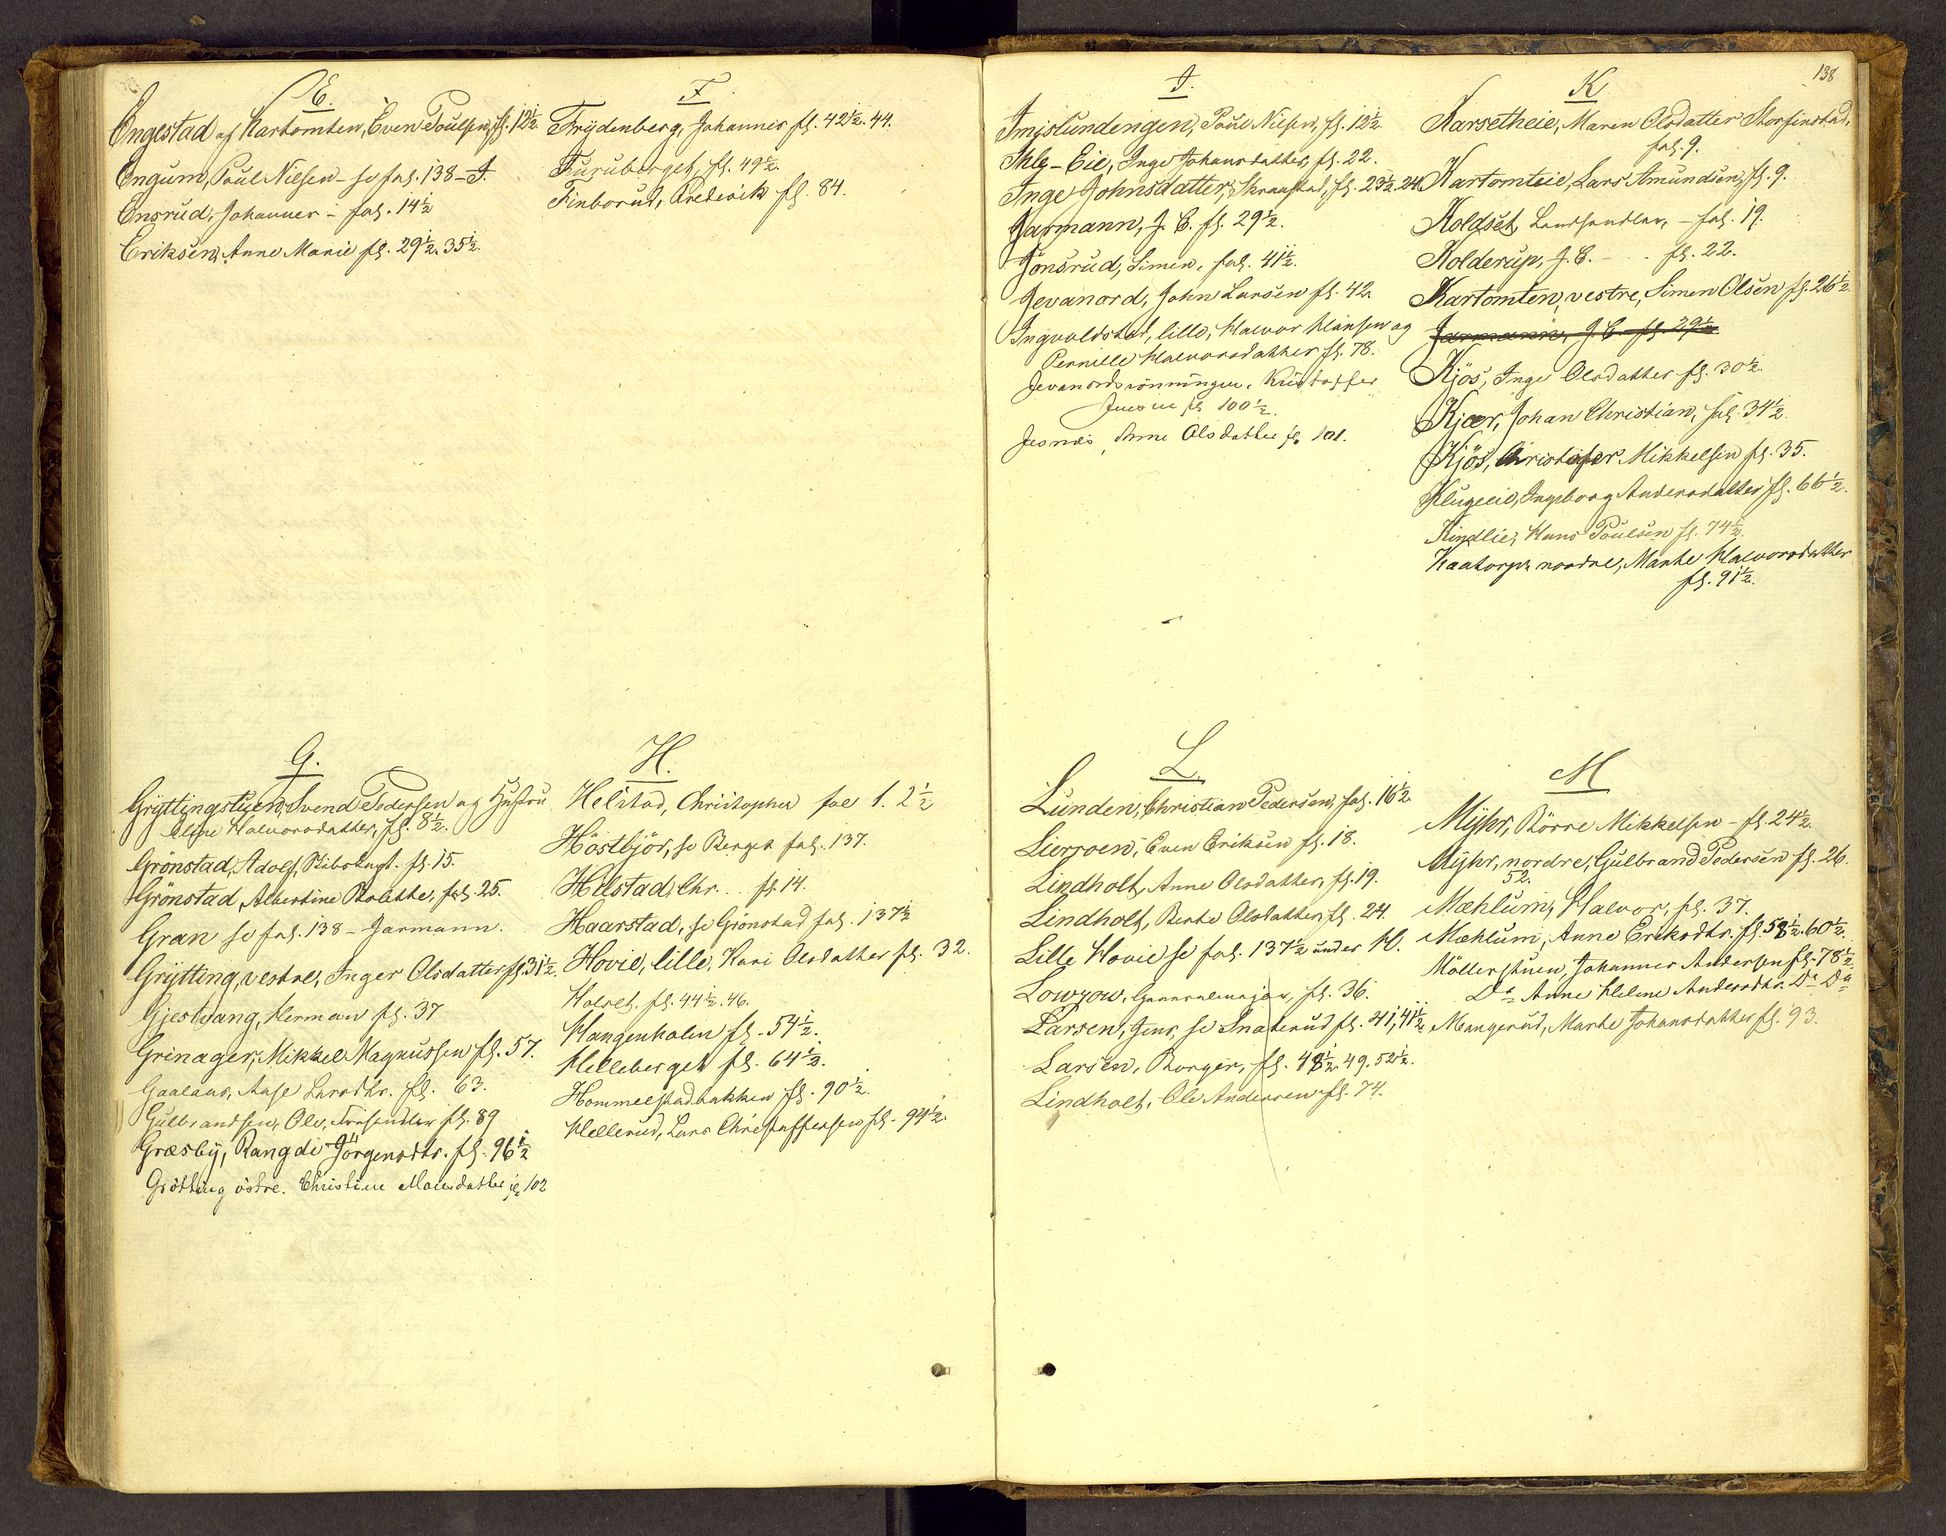 E.
Engestad af Kartomten, Even Poulsen, fl. 12½
Engum, Poul Nielsen - se fol. 138 - I.
Ensrud, Johannes - fol. 14½
Eriksen, Anne Marie fl. 29½. 35½
F
Frydenberg, Johannes fl. 42½. 44.
Furuberget, fl. 49½.
Finborud, Frederik fl. 84.
G.
Gryttingstuen, Svend Pedersen og Hustru
Eline Halvorsdatter, fl. 8½.
Grönstad, Adolf, fl. 15.
Grönstad, Albertine Bolette, fol. 25.
Gran se fol. 138 - Jarmann.
Grytting, vestre, Inger Olsdatter fl. 31½.
Gjestvang, Herman fl. 37
Grinager, Mikkel Magnussen fl. 57.
Gaalaas, Aase Larsdtr. fl. 63.
Gulbrandsen, Ole, fl. 89
Græsby, Rangdi Jörgensdtr. fl. 96½
Grötting östre. Christine fl 102
H.
Helstad, Christopher fol 1. 2½
Höstbjör, se Berget fol. 137.
Helstad, Chr. fl. 14.
Haarstad, se Grönstad fol. 137½
Hovie, lille, Kari Olsdatter fl. 32.
Holset. fl. 44½. 46.
Hangenholen fl. 54½.
Helleberget fl. 64½.
Hommelstadbakken fl. 90½.
Hellerud, Lars Christoffersen fl. 94½.
138
I.
Imislundengen, Poul Nielsen, fl. 12½
Ihle-Eie, Inge Johansdatter, fl. 22.
Inge Johnsdatter, Skraastad, fl. 23½. 24
Jarmann, J. C. fl. 29½.
Jönsrud, Simen, fol. 41½.
Jevanord, John Larsen fl. 42
Ingvoldstad, lille, Halvor Hansen og
Pernille Halvorsdatter fl. 78.
Jevanordsrönningen, Kristoffer
Jensen fl 100½.
Jesnæs, Anne Olsdatter fl 101.
K
Karsetheie, Maren Olsdatter Storfinstad,
fol. 9.
Kartomteie, Lars Amundsen, fl. 9.
Koldset, Landhandler, - fol. 19.
Kolderup, J. C. - . . fl. 22.
Kartomten, vestre, Simen Olsen fl. 26½
Jarmann, J. C. fl. 29½
Kjös, Inge Olsdatter fl. 30½.
Kjær, Johan Christian, fol. 34½
Kjös, Christofer Mikkelsen fl. 35.
Klugeeie, Ingeborg Andersdatter fl. 66½.
Kindlie, Hans Poulsen fl. 74½
Kaatorp, nordre, Marte Halvorsdatter
fl. 91½.
L.
Lunden, Christian Pedersen, fol. 16½
Lierroen, Even Eriksen fl. 18.
Lindholt, Anne Olsdatter, fl. 19.
Lindholt, Berte Olsdatter, fl. 24.
Lille Hovie se fol. 137½ under H.
Lowzow, Generalmajor, fl. 36.
Larsen, Jens, se Snaterud fl. 41, 41½
Larsen, Borger, fl. 48½. 49. 52½.
Lindholt, Ole Andersen fl. 74.
M
Myhr, Börre Mikkelsen - fl. 24½.
Myhr, nordre, Gulbrand Pedersen fl. 26.
52.
Mæhlum, Halvor, fl. 37.
Mæhlum, Anne Eriksdtr. fl. 58½. 60½.
Möllerstuen, Johannes Andersen fl. 78½
Do Anne Helene Andersdtr. Do Do
Mangerud, Marte Johansdatter fl. 93.